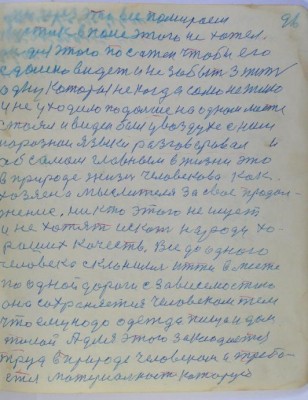 96
это все помираем
в поле этого не хотел.
этого посажен чтобы его
видеть и не забыть Эту
одну которая никогда само не жило
и не уходило подалше на одном месте
стоял и видел был у воздухе с ним
на разном языки разговаривал и
об самом главным в жизни это
в природе жизни человекова как
хозяена мыслителя за свое продол-
жение, никто этого не ищет
и не хотят искать народу хо-
роших качеств, Все до одного
человека склонилися итти в месте
по одной дороги с зависемостию
она сохраняется человеком тем
что ему надо одежда пища и дом
жилой А для этого заводится
труд в природе человеком и требо-
ется материалность которую